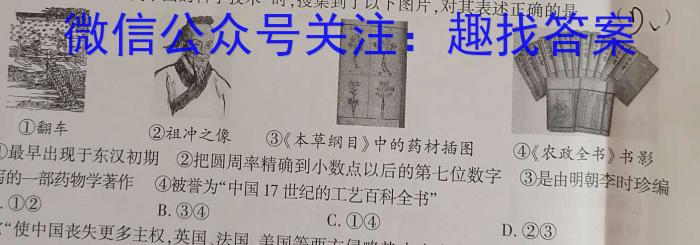 国的科学技术”时,搜集到了以下图片,对其表述正确的是
微信公众号关注:趣找答案
①翻车
②祖冲之像
③《本草纲目》中的药材插图
④《农政全书》书影
①最早出现于东汉初期 ②把圆周率精确到小数点以后的第七位数字 ③是由明朝李时珍编
写的一部药物学著作 ④被誉为“中国17世纪的工艺百科全书”
. ①② B. ③④ C. ①④ D. ②③
“使中国丧失更多主权,英国、法国、美国等西方侵略